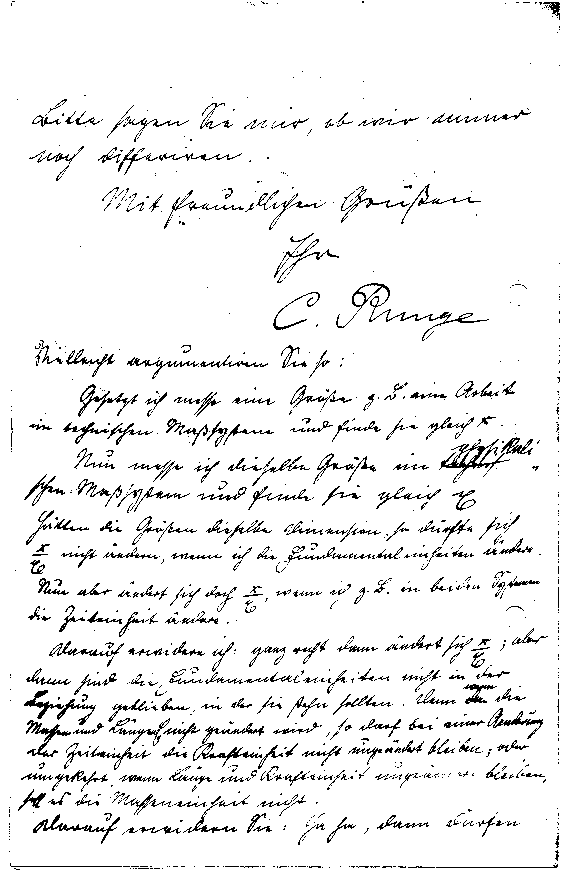 Bitte sagen Sie mir, ob wir immer
noch differiren.
Mit freundlichen Grüßen
Ihr
C. Runge
Vielleicht argumentiren Sie so:
Gesetzt ich messe eine Größe z. B. eine Arbeit
im technischen Maßsystem und finde sie gleich x.
Nun messe ich dieselbe Größe im physikali„
schen Maßsystem und finde sie gleich
Hätten die Größen dieselbe Dimension, so dürfte sich
nicht ändern, wenn ich die Fundamentaleinheiten ändere.
Nun aber ändert sich doch, wenn ich z. B. in beiden Systemen
die Zeiteinheit ändere.
Darauf erwidere ich: ganz recht dann ändert sich; aber
dann sind die Fundamentaleinheiten nicht in der
Beziehung geblieben, in der sie stehn sollten. Denn wenn die
Massen und Länge nicht geändert wird, so darf bei einer Aenderung
der Zeiteinheit die Krafteinheit nicht ungeändert bleiben; oder
umgekehrt wenn Länge und Krafteinheit ungeändert bleiben,
soll es die Masseneinheit nicht.
Darauf erwidern Sie: Ja ha, dann dürfen